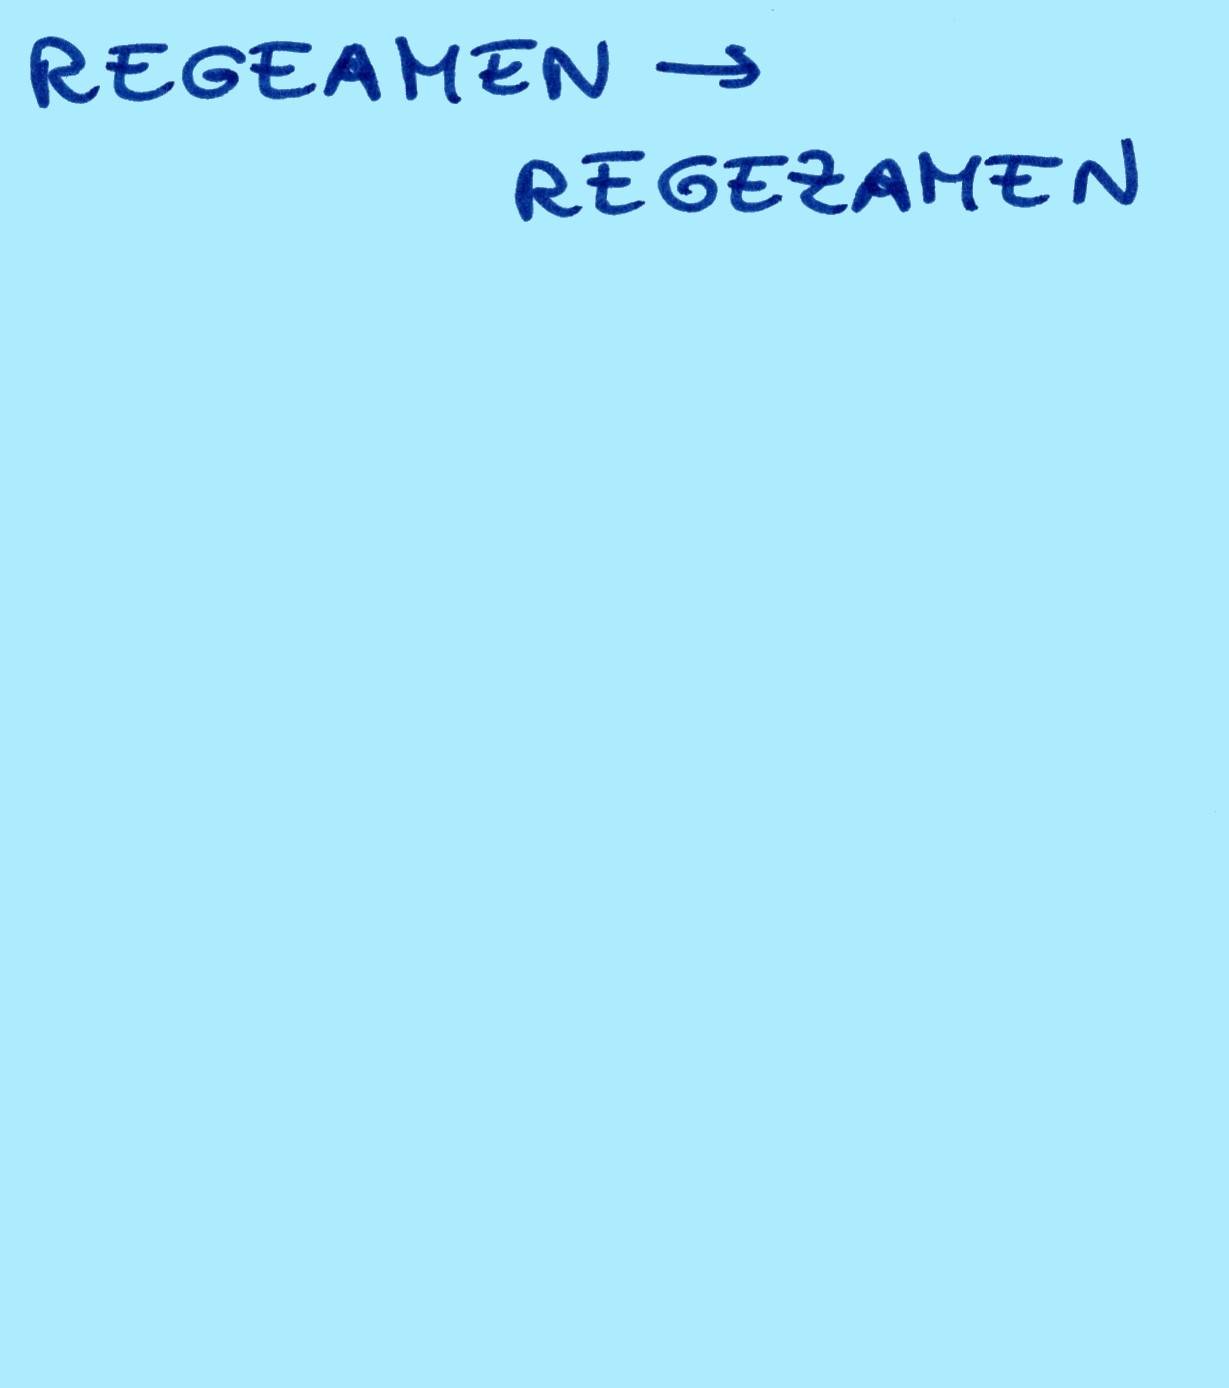 REGEAMEN →
REGEZAMEN